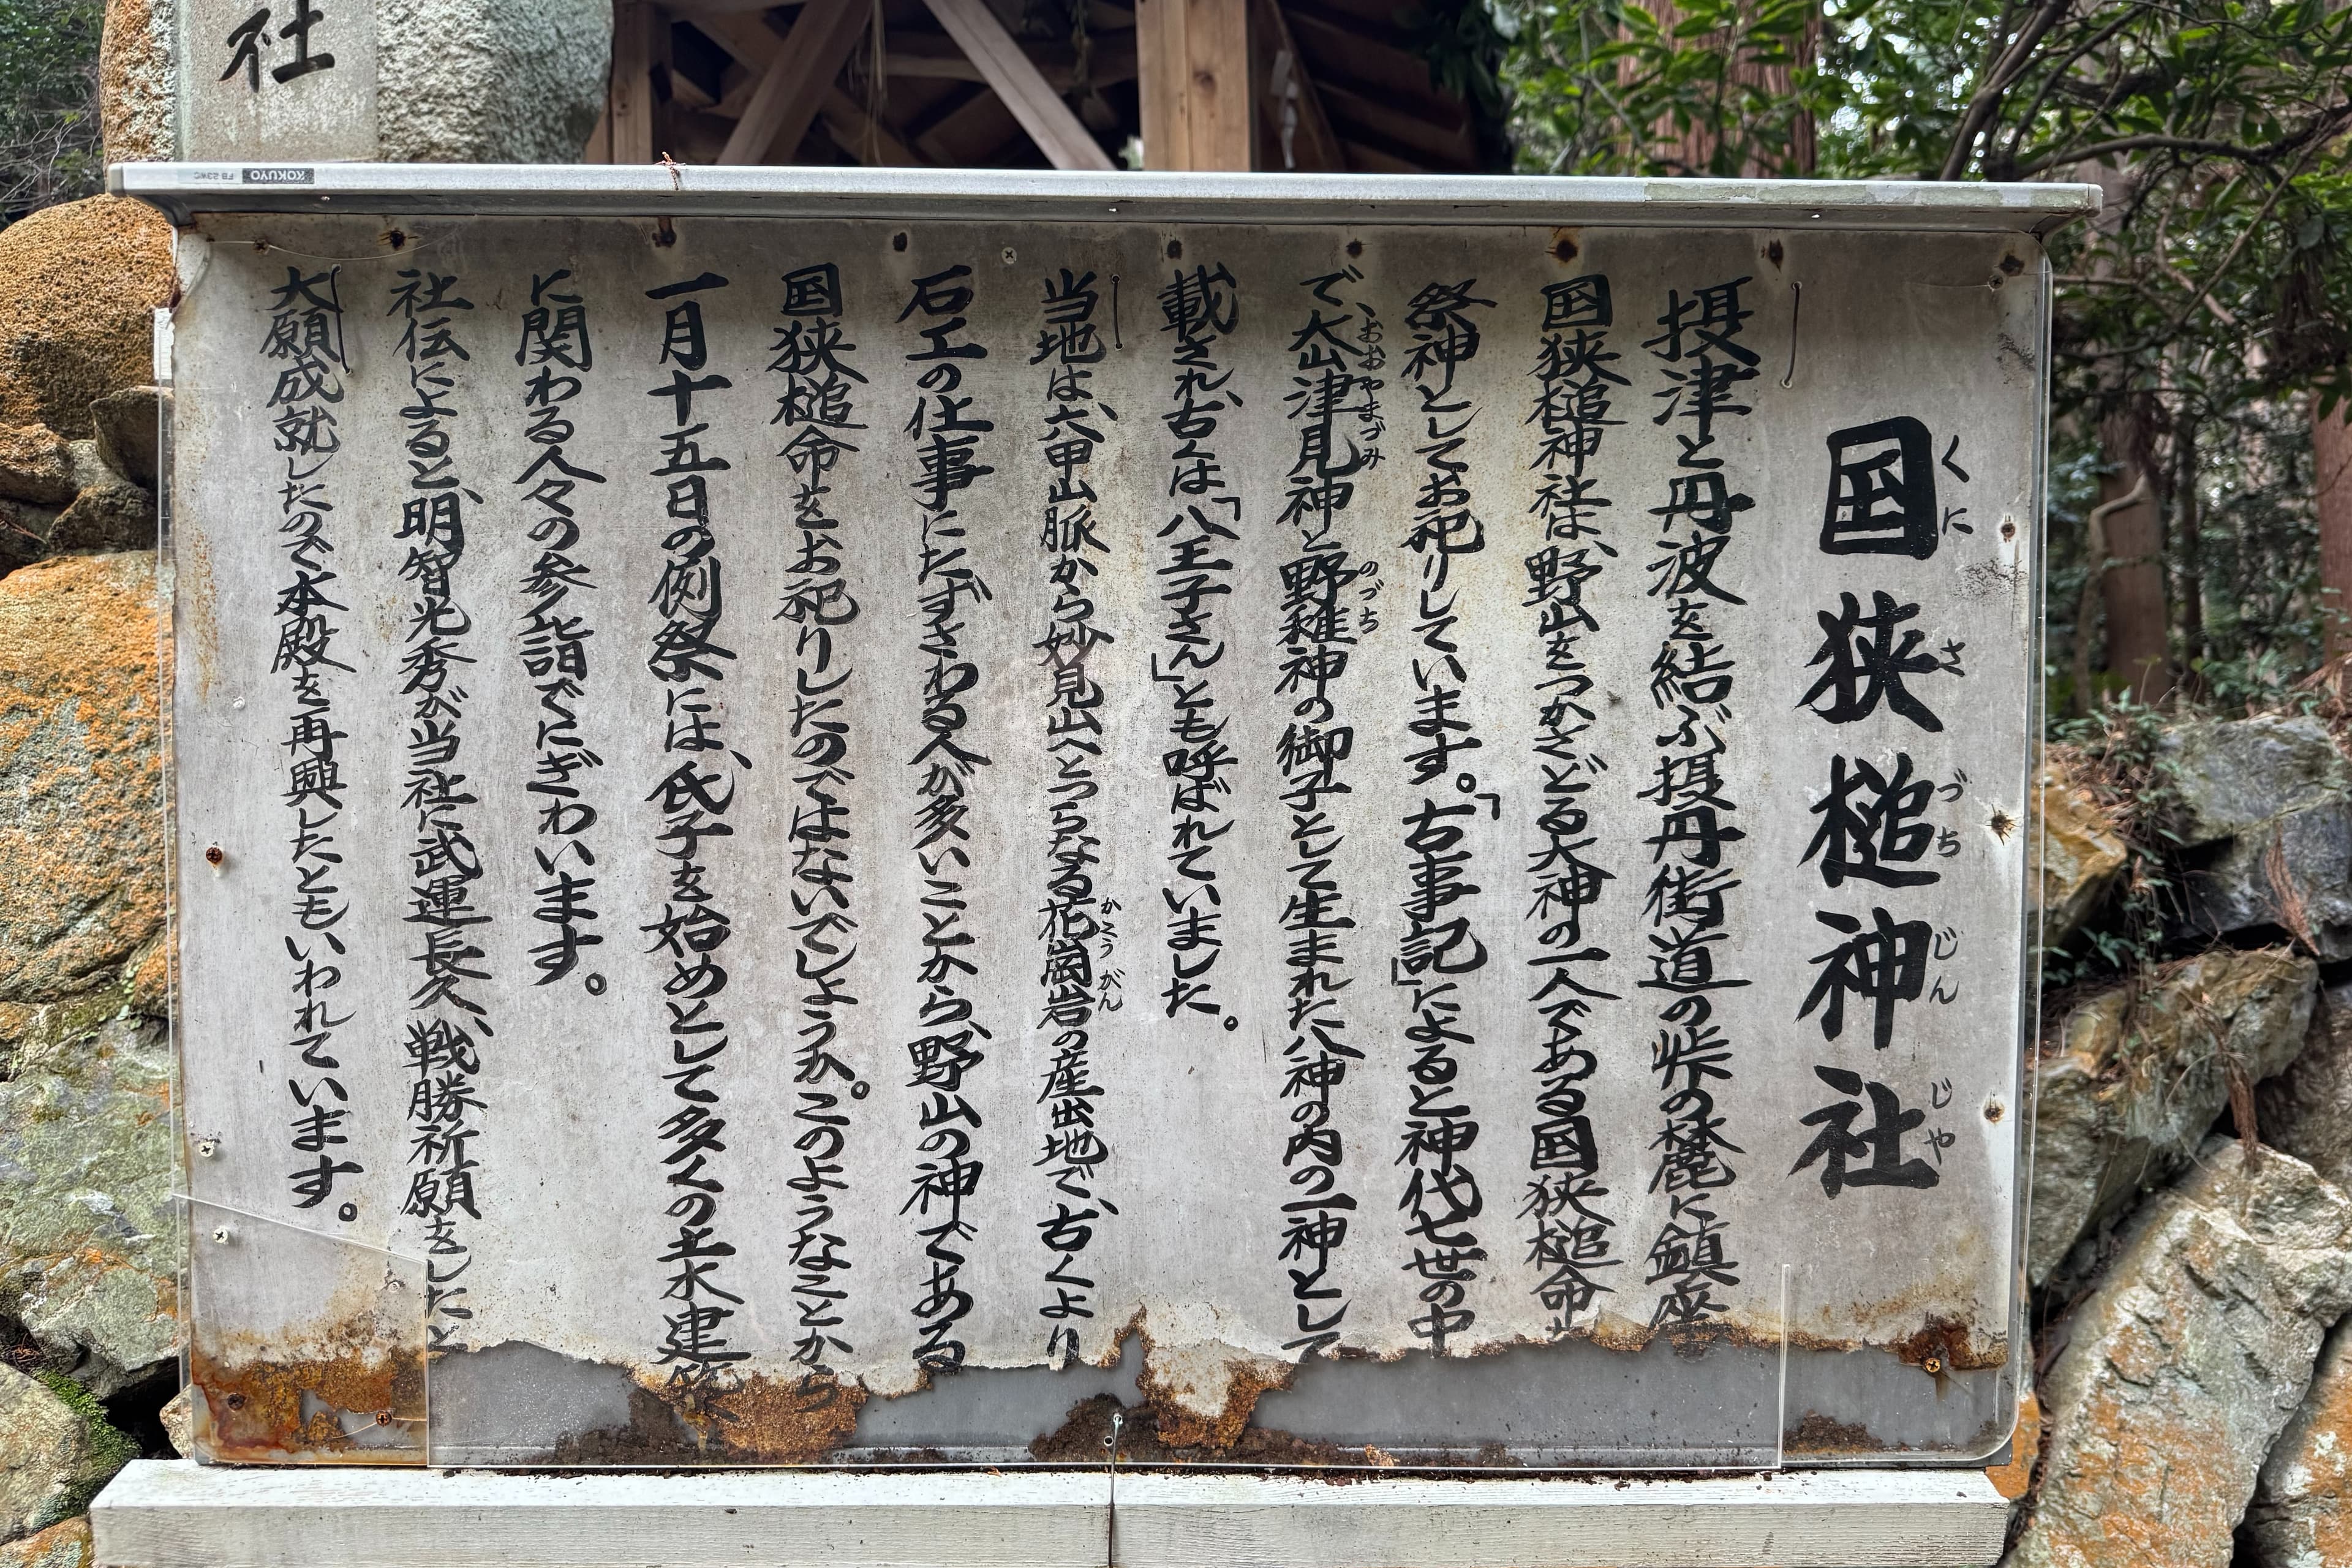 社
KOKUYO
国狭槌神社
くに さ づち じん じや
摂津と丹波を結ぶ摂丹街道の峠の麓に鎮座
国狭槌神社は、野山をつかさどる大神の一人である国狭槌命
祭神としてお祀りしています。「古事記」によると神代七世の中
で、大山津見神と野椎神の御子として生まれた八神の内の一神として
おおやまづみ のづち
載され、古くは「八王子さん」とも呼ばれていました。
当地は、六甲山脈から妙見山へとつらなる花崗岩の産出地で、古くより
かこうがん
石工の仕事にたずさわる人が多いことから、野山の神である
国狭槌命をお祀りしたのではないでしょうか。このようなことから
一月十五日の例祭には、氏子を始めとして多くの土木建築
に関わる人々の参詣でにぎわいます。
社伝によると、明智光秀が当社に武運長久、戦勝祈願をしたと
大願成就したので本殿を再興したともいわれています。